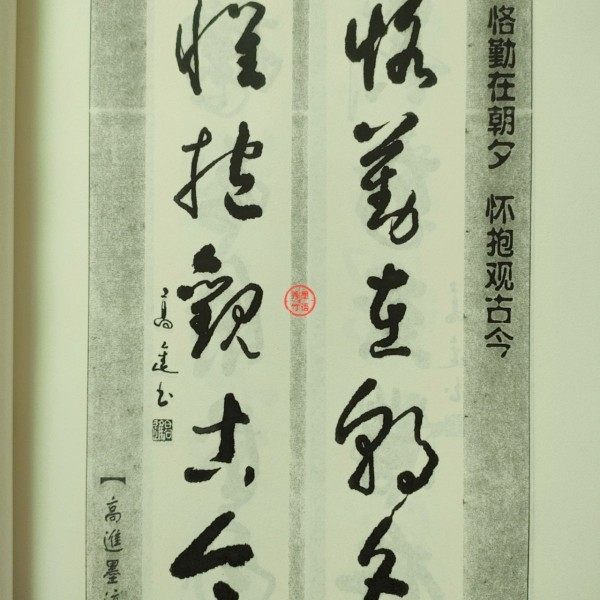 恪勤在朝夕 怀抱观古今
恪勤在朝夕
懷抱觀古今
高進书
【高進墨